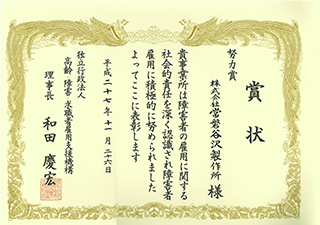 賞状
努力賞
株式会社常磐谷沢製作所 様
貴事業所は障害者の雇用に関する
社会的責任を深く認識され障害者
雇用に積極的に努められました
よってここに表彰します
平成二十七年十一月二十六日
独立行政法人
高齢・障害・求職者雇用支援機構
理事長 和田慶宏